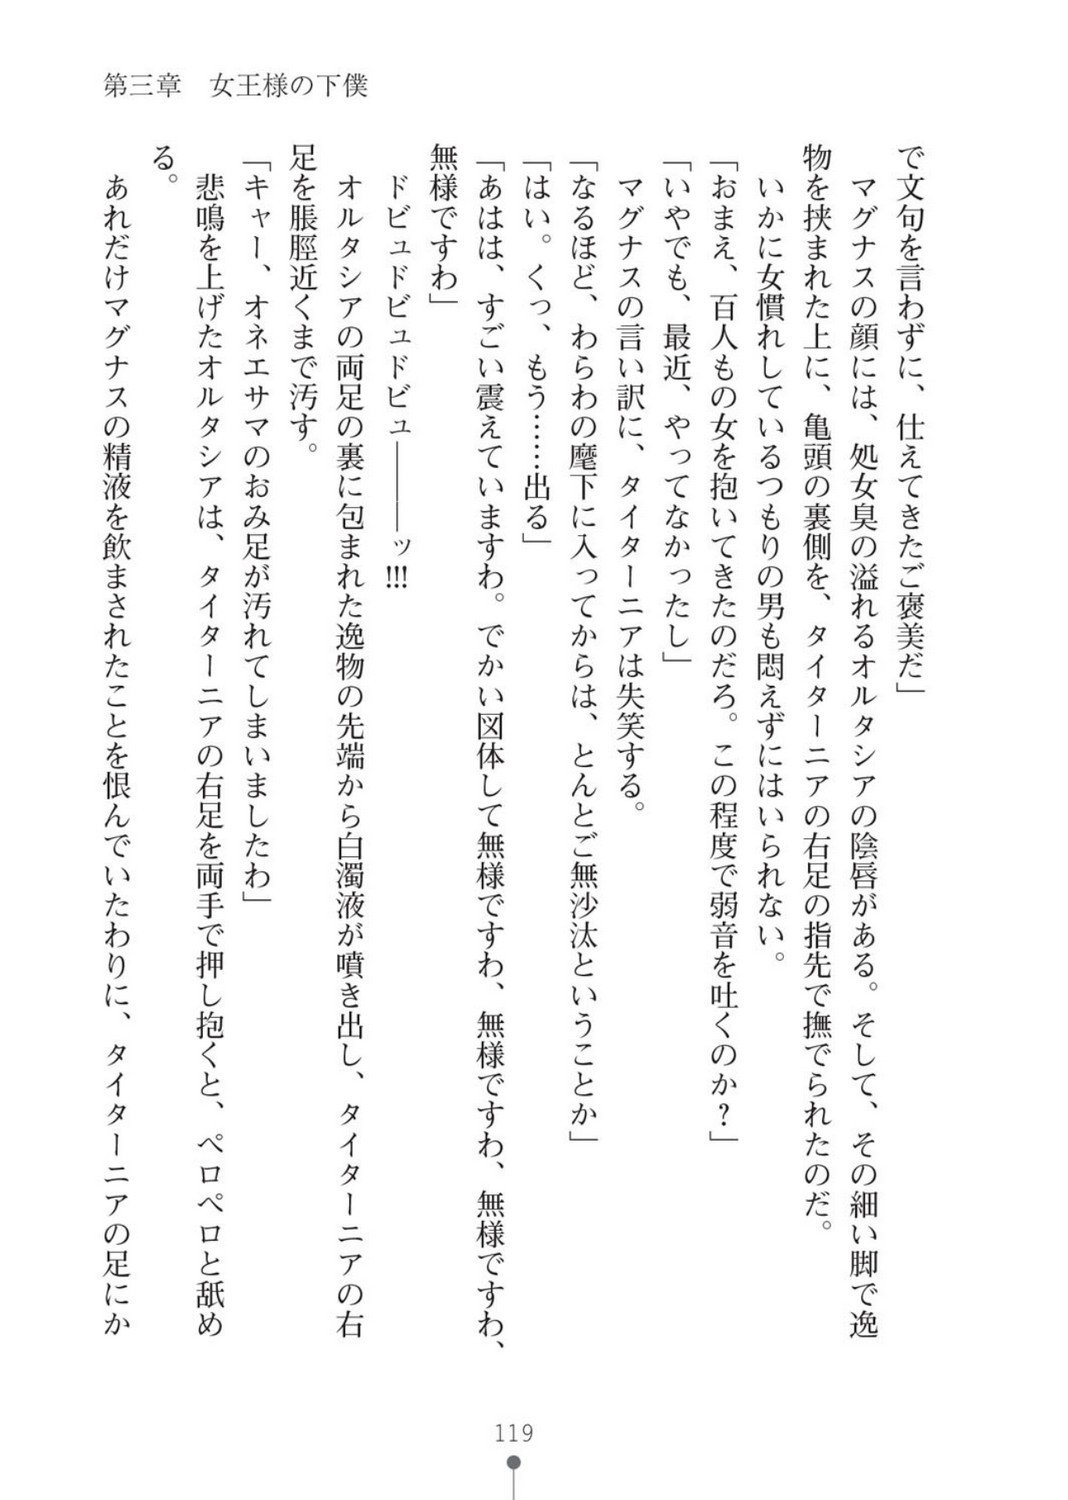 第三章　女王様の下僕
で文句を言わずに、仕えてきたご褒美だ」
　マグナスの顔には、処女臭の溢れるオルタシアの陰唇がある。そして、その細い脚で逸
物を挟まれた上に、亀頭の裏側を、タイターニアの右足の指先で撫でられたのだ。
　いかに女慣れしているつもりの男も悶えずにはいられない。
「おまえ、百人もの女を抱いてきたのだろ。この程度で弱音を吐くのか？」
「いやでも、最近、やってなかったし」
　マグナスの言い訳に、タイターニアは失笑する。
「なるほど、わらわの麾下に入ってからは、とんとご無沙汰ということか」
「はい。くっ、もう……出る」
「あはは、すごい震えていますわ。でかい図体して無様ですわ、無様ですわ、無様ですわ、
無様ですわ」
　ドビュドビュドビュ――――ッ!!!
　オルタシアの両足の裏に包まれた逸物の先端から白濁液が噴き出し、タイターニアの右
足を脹脛近くまで汚す。
「キャー、オネエサマのおみ足が汚れてしまいましたわ」
　悲鳴を上げたオルタシアは、タイターニアの右足を両手で押し抱くと、ペロペロと舐め
る。
　あれだけマグナスの精液を飲まされたことを恨んでいたわりに、タイターニアの足にか
119